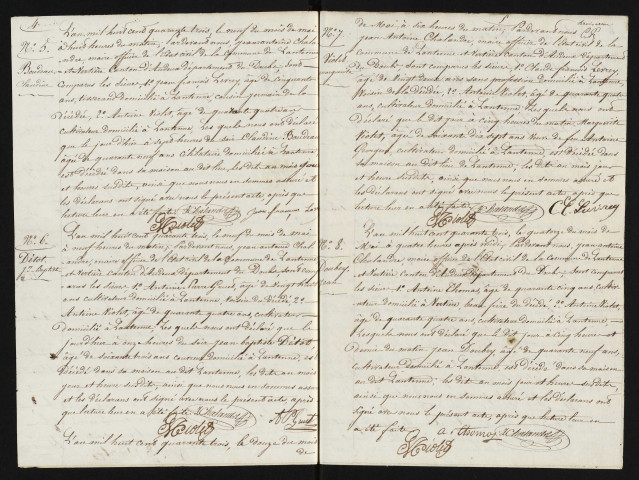 4.
N°. 5.
Boudran
Claudine
L'an mil huit cent quarante trois, le neuf du mois de mai
à huit heures du matin, Pardevant nous, Jean antoine Chala
maire officier de l'Etat civil de la Commune de Lantenne
et Vertière Canton d'Audeux Département du Doubs, sont
comparus les sieurs 1°. Jean françois
domicilié à Lantenne, cousin germain de la
Décédée, 2°. Antoine Violet, âgé de quarante quatre ans
cultivateur domicilié à Lantenne, lesquels nous ont déclaré
que le jour d'hier à sept heures du soir Claudine Boudran
âgée de quarante neuf ans à Lantenne
est décédée dans sa maison au dit lieu, les dits an mois jour
et heure susdits, ainsi que nous nous en sommes assuré et
les déclarans ont signé avec nous le présent acte, après que
lecture leur en a été faite.
N°. 6.
Détot
Jn. Baptiste
L'an mil huit cent quarante trois, le neuf du mois de mai
à neuf heures du matin, Pardevant nous, jean antoine Chal
maire, officier de l'Etat civil de la Commune de Lantenne
et Vertière Canton d'Audeux département du Doubs, sont comp
arus les sieurs 1°. Antoine Pierre
ans cultivateur domicilié à Lantenne, voisin du Décédé 2°.
Antoine Violet, âgé de quarante quatre ans, cultivateur
Domicilié à Lantenne, lesquels nous ont déclaré que le
jour d'hier à onze heures du soir jean baptiste Détot
âgé de soixante trois ans domicilié à Lantenne, est
décédé dans sa maison au dit Lantenne, les dits an mois
jour et heure susdits, ainsi que nous nous en sommes assuré
et les déclarans ont signé avec nous le présent acte, après
que lecture leur en a été faite.
L'an mil huit cent quarante trois, le douze du mois
de
N°. 7.
Violet
Marguerite
de Mai à dix heures du matin, Pardevant nous
Jean Antoine Chalandre, maire officier de l'Etat civil de la
Commune de Lantenne et Vertière Canton d'Audeux Département
du Doubs, sont comparus les sieurs 1°. Claude francois
âgé de vingt deux ans sans profession domicilié à Lantenne
voisin de la Décédée, 2°. Antoine Violet, âgé de quarante quatre
ans, cultivateur domicilié à Lantenne, lesquels nous ont
Déclaré que le dit jour à cinq heures du matin Marguerite
Violet, âgée de soixante dix sept ans veuve de feu Antoine
cultivateur domicilié à Lantenne, est décédée dans
sa maison au dit lieu de Lantenne, les dits an mois jour
et heure susdits, ainsi que nous nous en sommes assuré et
les déclarans ont signé avec nous le présent acte, après que
lecture leur en a été faite.
N°. 8.
jean
L'an mil huit cent quarante trois, le quatorze du mois de
Mai à quatre heures après midi, Pardevant nous, jean antoine
Chalandre, maire officier de l'Etat civil de la Commune de Lantenne
et Vertière, canton d'Audeux Département du Doubs, sont comparus
les sieurs 1°. Antoine Thomas, âgé de quarante cinq ans, cultiv
ateur domicilié à Vertière beau frère du Décédé, 2°. Antoine Violet,
âgé de quarante quatre ans, cultivateur domicilié à Lantenne,
Lesquels nous ont déclaré que le dit jour à cinq heures et
demie du matin jean âgé de quarante neuf ans,
cultivateur Domicilié à Lantenne est Décédé dans sa maison
au dit Lantenne, les dits an mois jour et heure susdits,
ainsi que nous nous en sommes assuré et les Déclarans ont
signé avec nous le présent acte, après que lecture leur en
a été faite.
A. Thomas